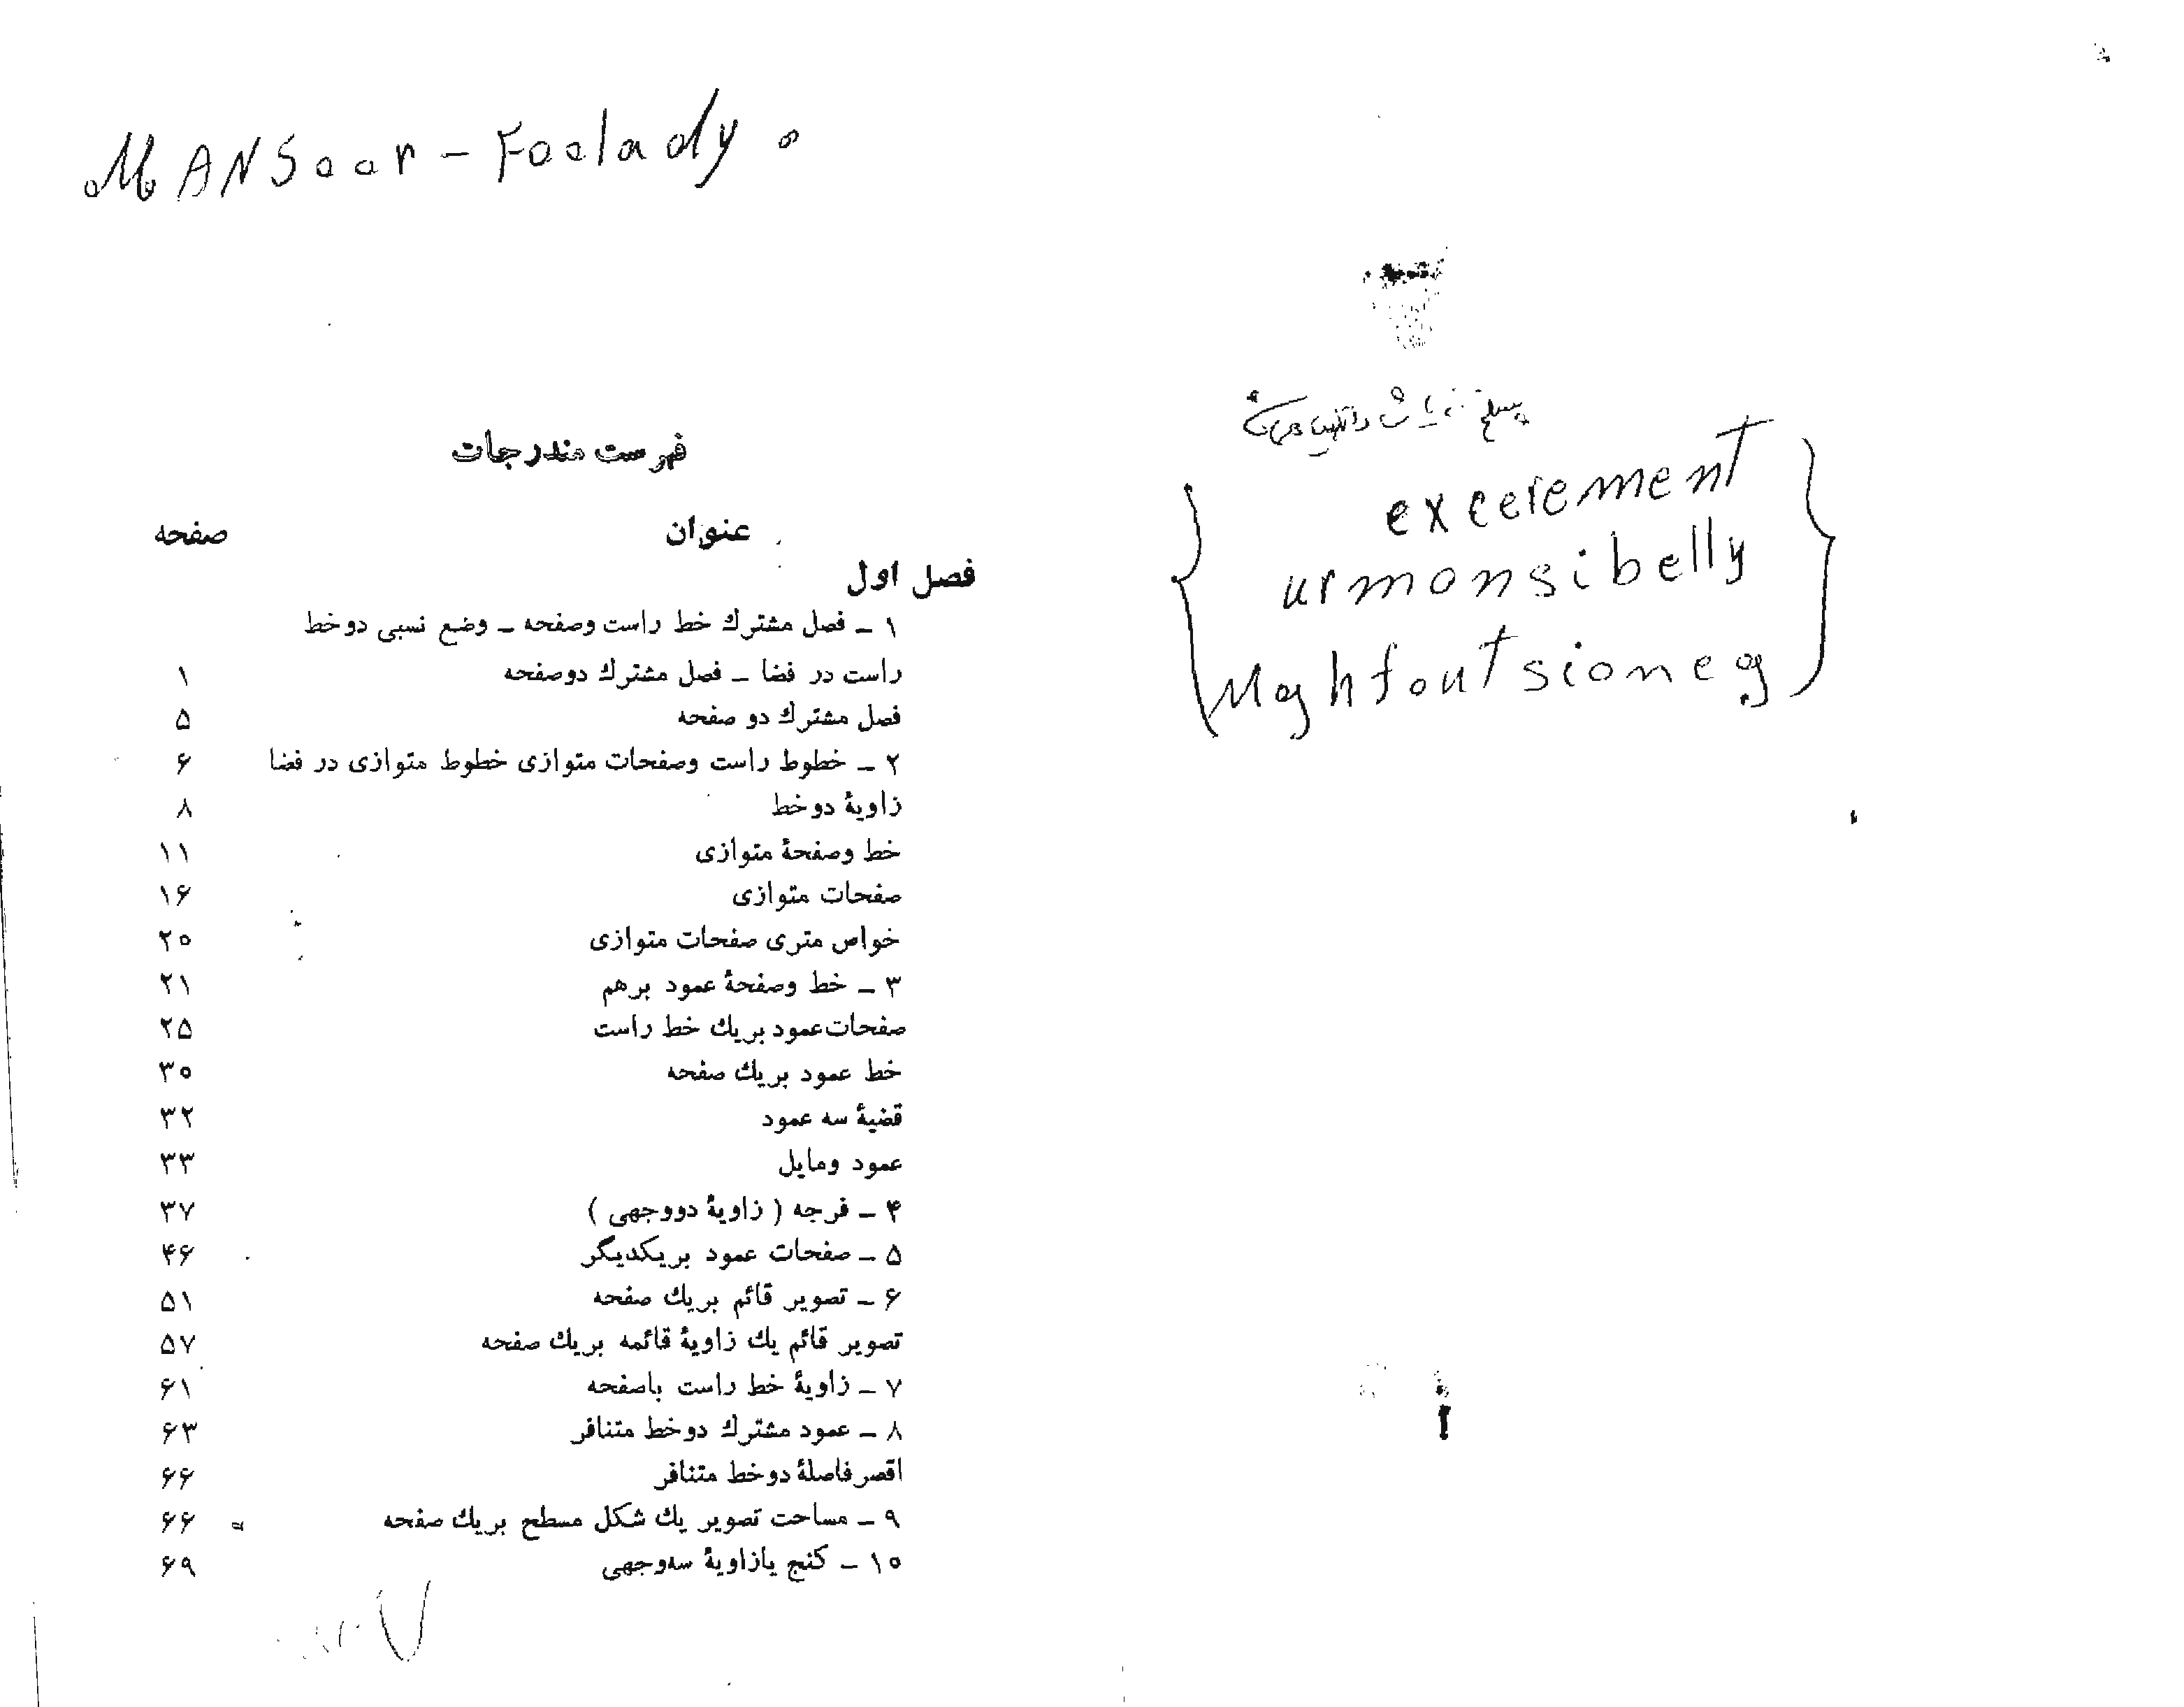 MANSoor - Foolady
فهرست مندرجات
عنوان صفحه
فصل اول
۱ ـ فصل مشترك خط راست وصفحه ـ وضع نسبی دوخط
راست در فضا ـ فصل مشترك دوصفحه ۱
فصل مشترك دو صفحه ۵
۲ ـ خطوط راست وصفحات متوازی خطوط متوازی در فضا ۶
زاویهٔ دوخط ۸
خط وصفحهٔ متوازی ۱۱
صفحات متوازی ۱۶
خواص متری صفحات متوازی ۲۰
۳ ـ خط وصفحهٔ عمود برهم ۲۱
صفحات عمود بریك خط راست ۲۵
خط عمود بریك صفحه ۳۰
قضیهٔ سه عمود ۳۲
عمود ومایل ۳۳
۴ ـ فرجه ( زاویهٔ دووجهی ) ۳۷
۵ ـ صفحات عمود بریکدیگر ۴۶
۶ ـ تصویر قائم بریك صفحه ۵۱
تصویر قائم یك زاویهٔ قائمه بریك صفحه ۵۷
۷ ـ زاویهٔ خط راست باصفحه ۶۱
۸ ـ عمود مشترك دوخط متنافر ۶۳
اقصر فاصلهٔ دوخط متنافر ۶۶
۹ ـ مساحت تصویر یك شکل مسطح بریك صفحه ۶۶
۱۰ ـ کنج یازاویهٔ سه‌وجهی ۶۹
excerement
urmonsibelly
Moghfoutsioneg